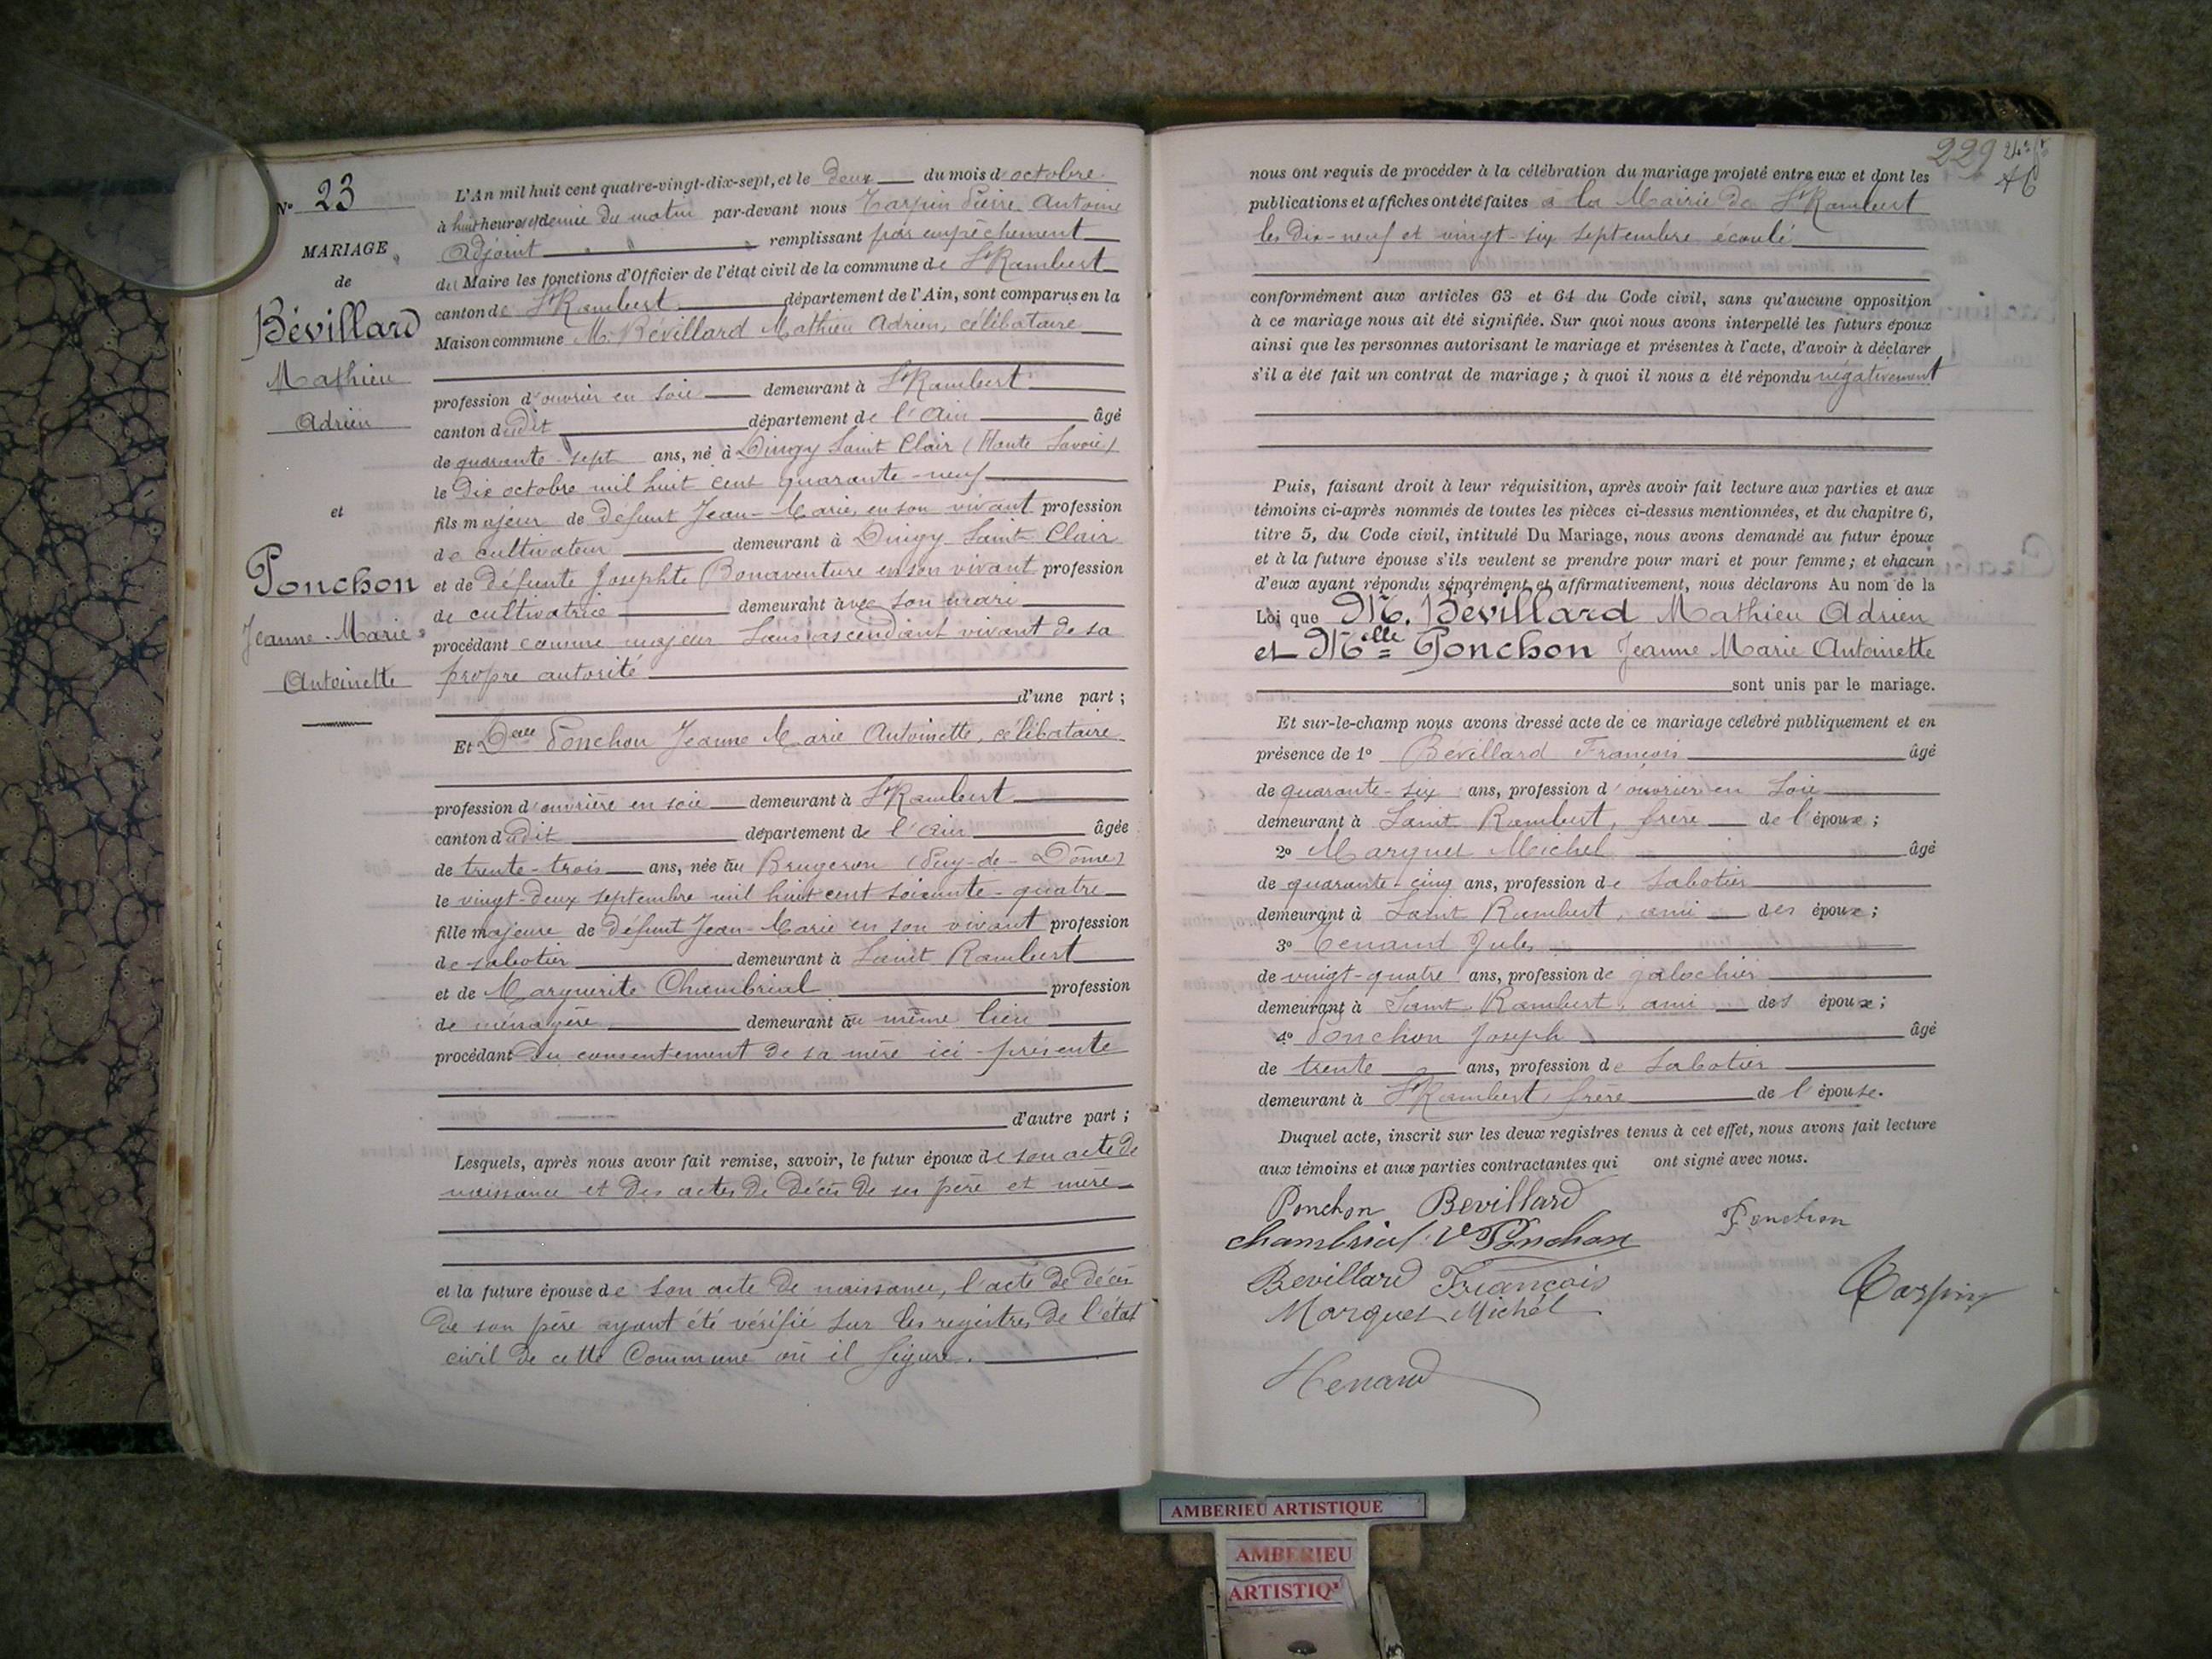 N° 23
MARIAGE
de
Bévillard
Mathieu
Adrien
et
Ponchon
Jeanne-Marie
Antoinette
L'An mil huit cent quatre-vingt-dix-sept, et le deux du mois d'octobre
à huit heures et demie du matin par-devant nous Tarpin Pierre Antoine
Adjoint remplissant par empêchement
du Maire les fonctions d'Officier de l'état civil de la commune de St Rambert
canton de St Rambert département de l'Ain, sont comparus en la
Maison commune M. Bévillard Mathieu Adrien, célibataire
profession d'ouvrier en soie demeurant à St Rambert
canton dudit département de l'Ain âgé
de quarante-sept ans, né à Dingy Saint Clair (Haute Savoie)
le dix octobre mil huit cent quarante-neuf
fils majeur de défunt Jean-Marie, en son vivant profession
de cultivateur demeurant à Dingy Saint Clair
et de défunte Josephte Bonaventure en son vivant profession
de cultivatrice demeurant avec son mari
procédant comme majeur sans ascendant vivant de sa
propre autorité
d'une part ;
Et Delle Ponchon Jeanne Marie Antoinette, célibataire
profession d'ouvrière en soie demeurant à St Rambert
canton dudit département de l'Ain âgée
de trente-trois ans, née au Brugeron (Puy-de-Dôme)
le vingt-deux septembre mil huit cent soixante-quatre
fille majeure de défunt Jean-Marie en son vivant profession
de sabotier demeurant à Saint Rambert
et de Marguerite Chambrial profession
de ménagère demeurant au même lieu
procédant du consentement de sa mère ici-présente
d'autre part ;
Lesquels, après nous avoir fait remise, savoir, le futur époux de son acte de
naissance et des actes de décès de ses père et mère
et la future épouse de son acte de naissance, l'acte de décès
de son père ayant été vérifié sur les registres de l'état
civil de cette Commune où il figure.
229
nous ont requis de procéder à la célébration du mariage projeté entre eux et dont les
publications et affiches ont été faites à la Mairie de St Rambert
les dix-neuf et vingt-six septembre écoulé
conformément aux articles 63 et 64 du Code civil, sans qu'aucune opposition
à ce mariage nous ait été signifiée. Sur quoi nous avons interpellé les futurs époux
ainsi que les personnes autorisant le mariage et présentes à l'acte, d'avoir à déclarer
s'il a été fait un contrat de mariage ; à quoi il nous a été répondu négativement
Puis, faisant droit à leur réquisition, après avoir fait lecture aux parties et aux
témoins ci-après nommés de toutes les pièces ci-dessus mentionnées, et du chapitre 6,
titre 5, du Code civil, intitulé Du Mariage, nous avons demandé au futur époux
et à la future épouse s'ils veulent se prendre pour mari et pour femme ; et chacun
d'eux ayant répondu séparément et affirmativement, nous déclarons Au nom de la
Loi que M. Bévillard Mathieu Adrien
et Melle Ponchon Jeanne Marie Antoinette
sont unis par le mariage.
Et sur-le-champ nous avons dressé acte de ce mariage célébré publiquement et en
présence de 1° Bévillard François âgé
de quarante-six ans, profession d'ouvrier en soie
demeurant à Saint Rambert, frère de l'époux ;
2° Marquet Michel âgé
de quarante-cinq ans, profession de sabotier
demeurant à Saint Rambert, ami des époux ;
3° Henand Jules
de vingt-quatre ans, profession de galochier
demeurant à Saint Rambert, ami des époux ;
4° Ponchon Joseph âgé
de trente ans, profession de sabotier
demeurant à St Rambert, frère de l'épouse.
Duquel acte, inscrit sur les deux registres tenus à cet effet, nous avons fait lecture
aux témoins et aux parties contractantes qui ont signé avec nous.
Ponchon Bevillard
Ponchon
chambrial Ve Ponchon
Bevillard François
Tarpin
Marquet Michel
Henand
AMBERIEU ARTISTIQUE
AMBERIEU
ARTISTIQ